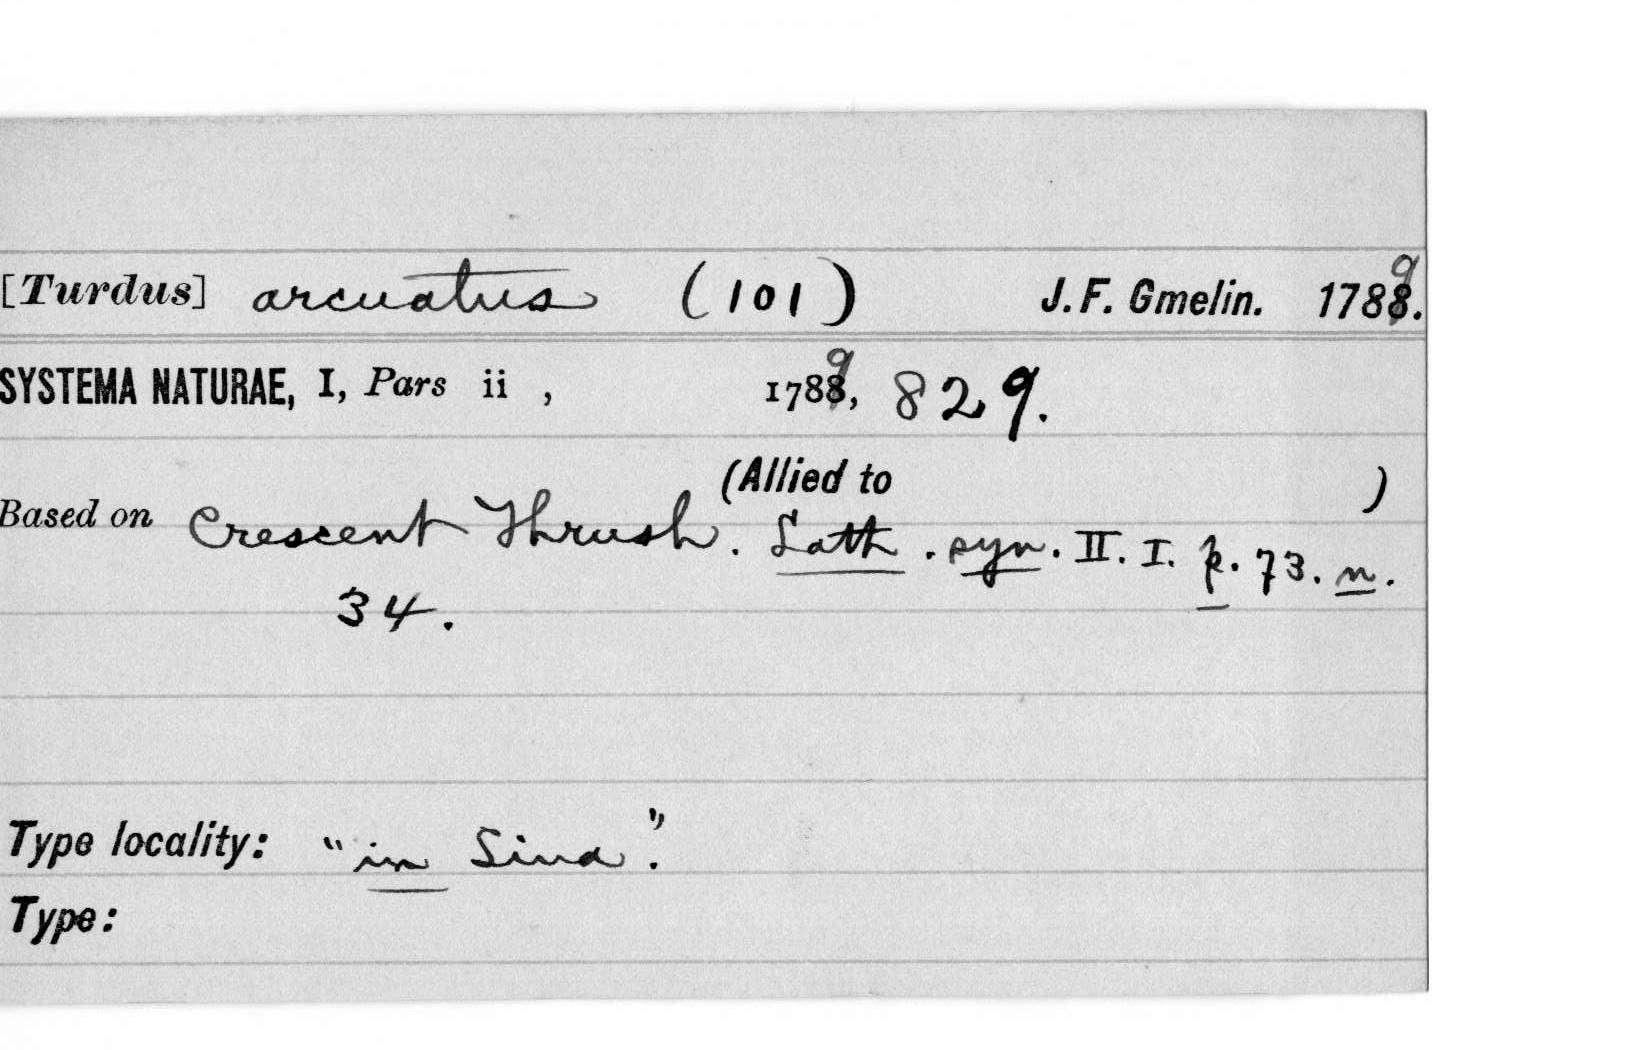 [Turdus] arcuatus (101) J. F. Gmelin. 1789.
SYSTEMA NATURAE, I, Pars ii , 1789, 829.
(Allied to )
Based on Crescent Thrush. Lath. syn. II. I. p. 73. n.
34.
Type locality: "in Sina".
Type: